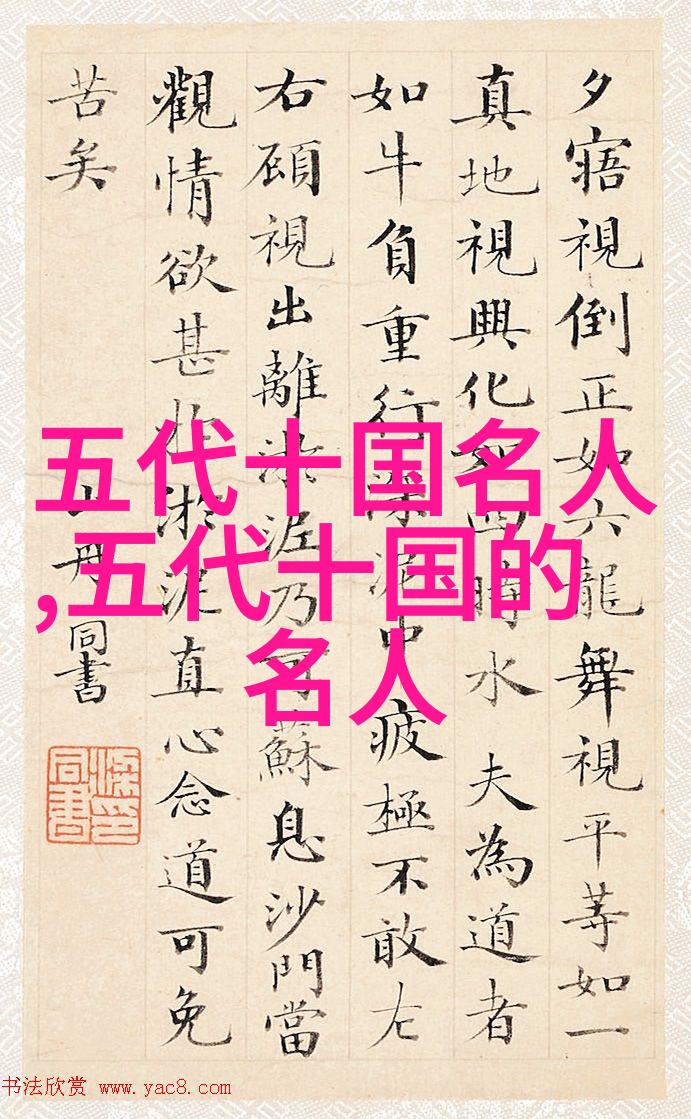 夕寤視倒正如六龍舞視平等如一
真地視興化如四時水夫為道者
如牛負重行深泥中疲極不敢左
右頋視出離淤泥乃可蘇息沙門當
觀情欲甚於淤泥直心念道可免
苦矣
山舟同書
五代十国名人
,五代十国的
名人
书法欣赏 www.yac8.com